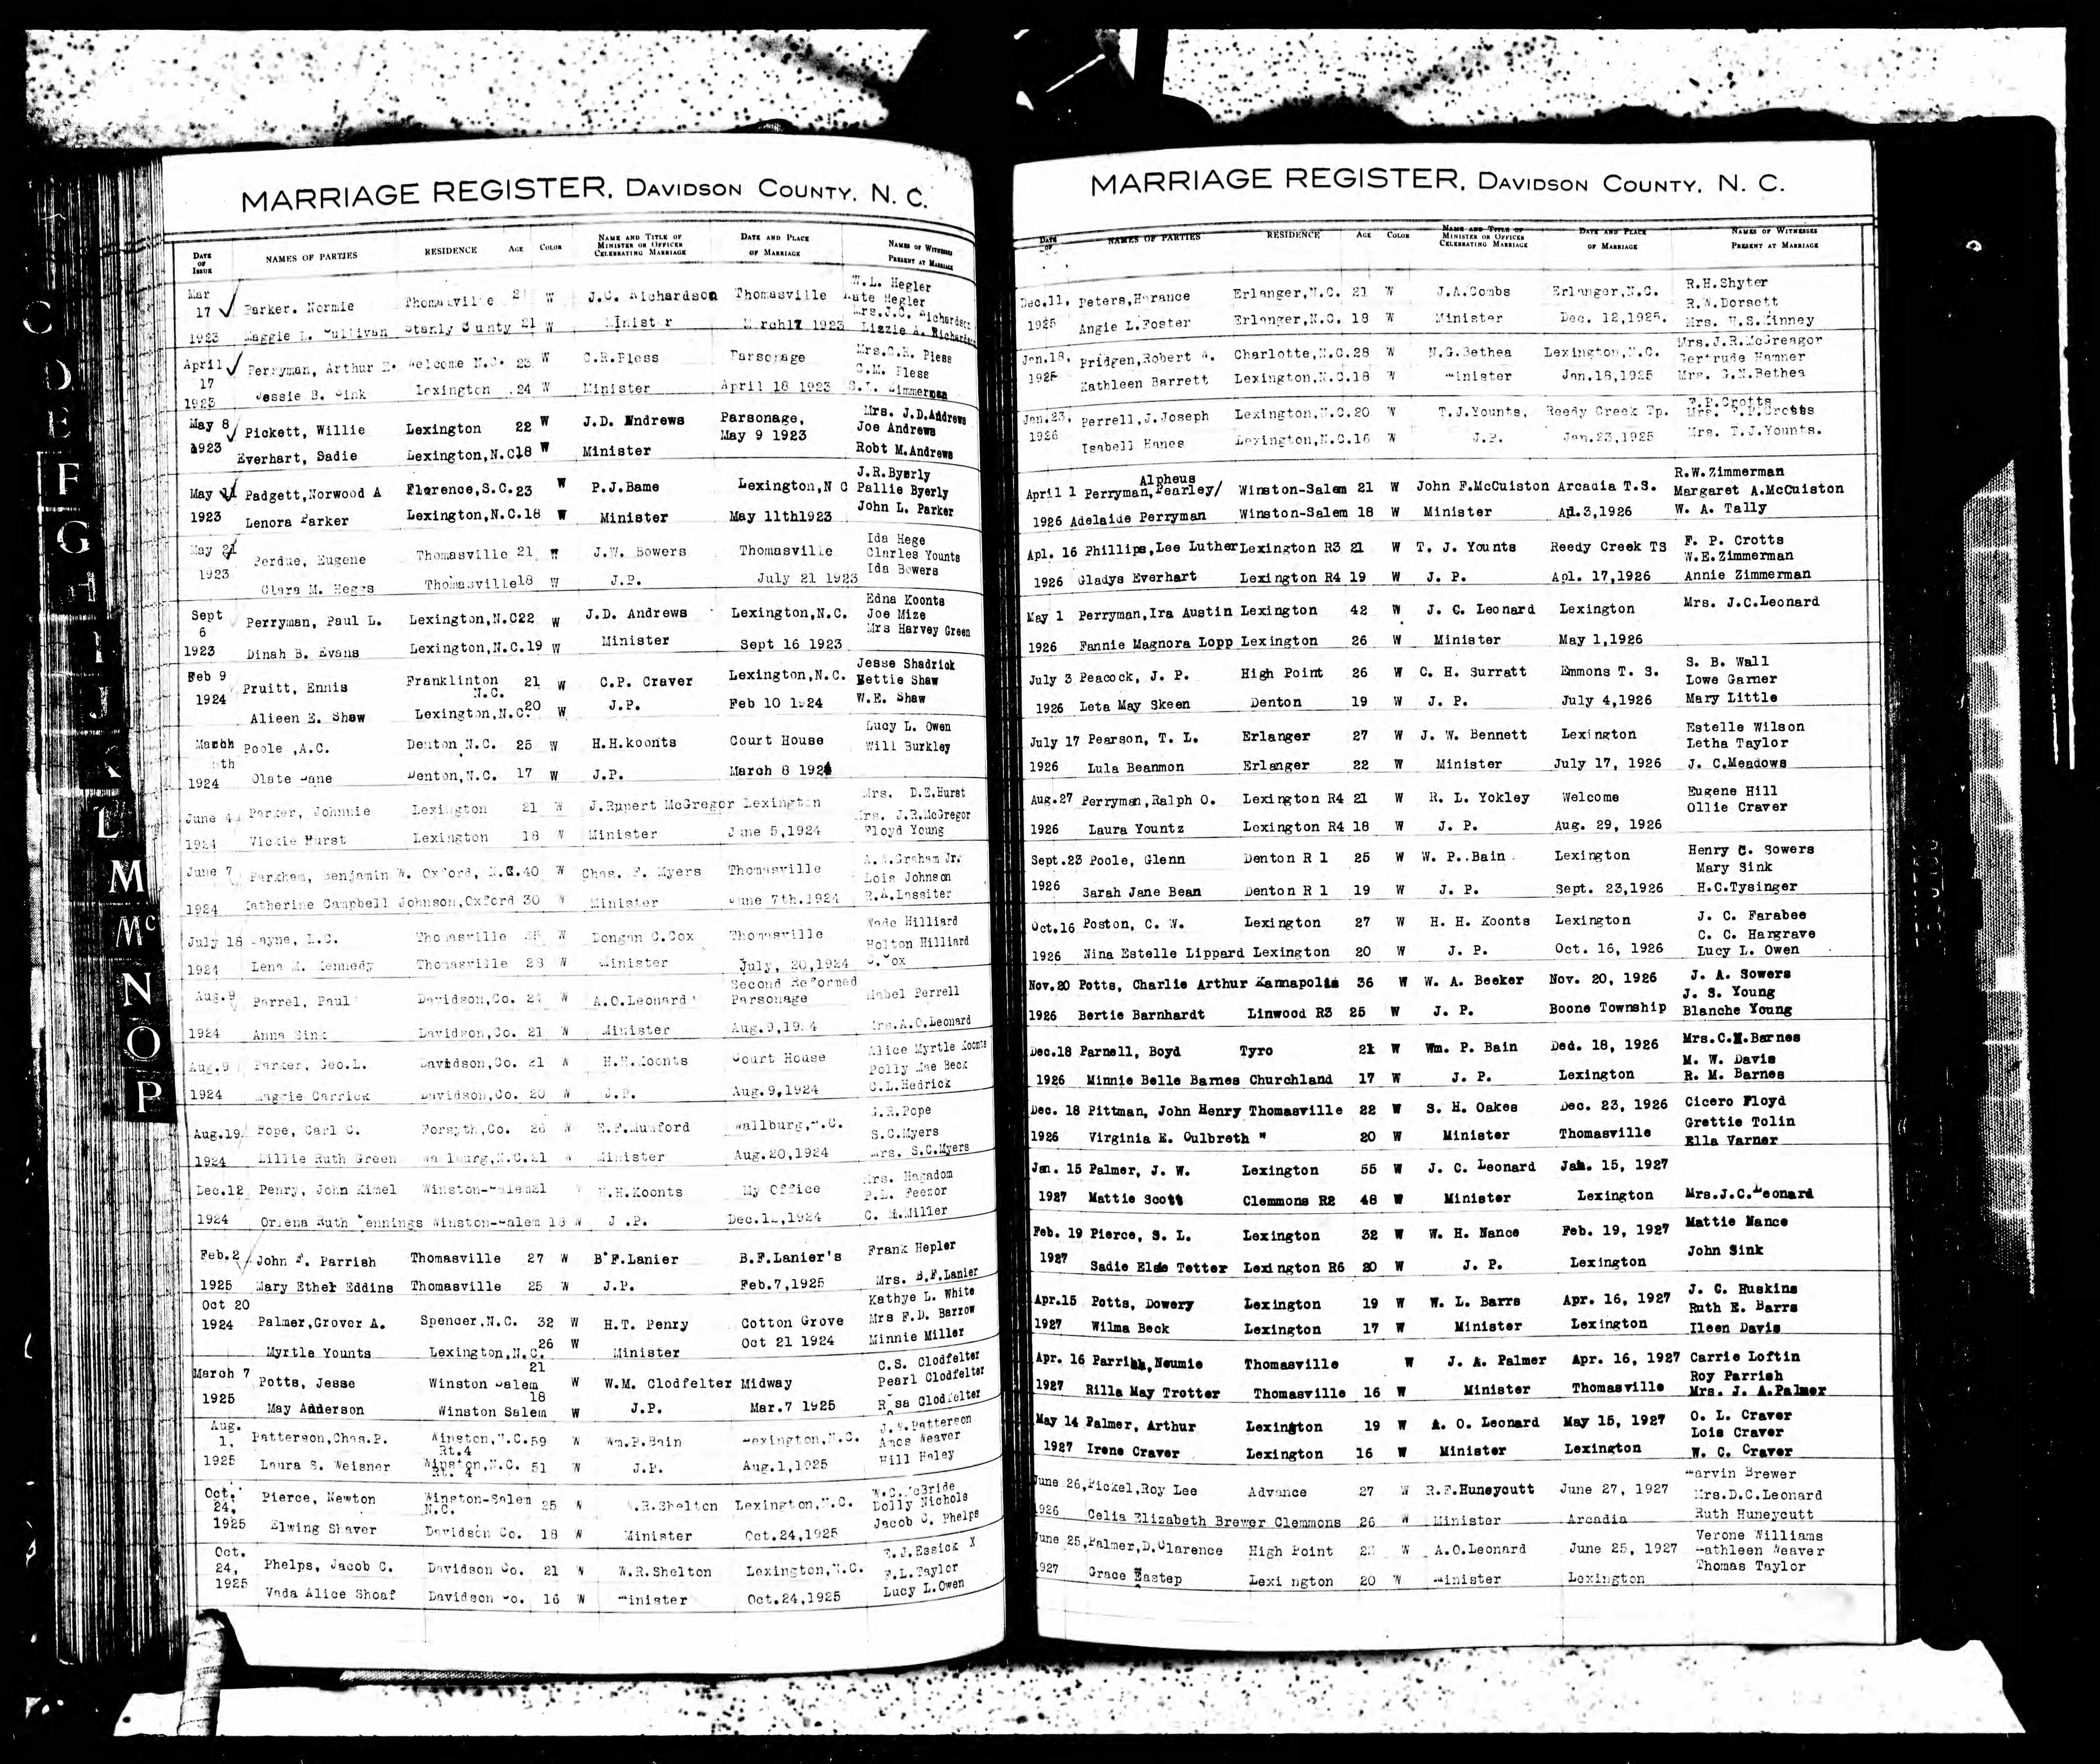 C
D
E
F
G
H
I
J
K
L
M
Mc
N
O
P
MARRIAGE REGISTER, DAVIDSON COUNTY, N. C.
DATE OF ISSUE NAMES OF PARTIES RESIDENCE AGE COLOR NAME AND TITLE OF MINISTER OR OFFICER CELEBRATING MARRIAGE DATE AND PLACE OF MARRIAGE NAMES OF WITNESSES PRESENT AT MARRIAGE
W.L. Hegler
Mar 17 Parker. Normie Thomasville 21 W J.C. Richardson Thomasville Kate Hegler
Mrs.J.C. Richardson
1923 Maggie L. Sullivan Stanly County 21 W Minister March17 1923 Lizzie A. Richardson
April 17 Perryman, Arthur Welcome N.C. 23 W C.R.Pless Parsonage Mrs.C.R. Pless
C.M. Pless
1923 Jessie B. Sink Lexington 24 W Minister April 18 1923 Zimmerman
May 8 Pickett, Willie Lexington 22 W J.D. Andrews Parsonage, Mrs. J.D.Andrews
May 9 1923 Joe Andrews
1923 Everhart, Sadie Lexington,N.C18 W Minister Robt M.Andrews
J.R.Byerly
May 11 Padgett,Norwood A Florence,S.C.23 W P.J.Bame Lexington,N C Pallie Byerly
1923 Lenora Parker Lexington,N.C.18 W Minister May 11th1923 John L. Parker
Ida Hege
May 21 Perdue, Eugene Thomasville 21 W J.W. Bowers Thomasville Clarles Younts
1923 Clara M. Heggs Thomasville18 W J.P. July 21 1923 Ida Bowers
Edna Koonts
Sept 6 Perryman, Paul L. Lexington,N.C22 W J.D. Andrews Lexington,N.C. Joe Mize
1923 Dinah B. Evans Lexington,N.C.19 W Minister Sept 16 1923 Mrs Harvey Green
Feb 9 Jesse Shadrick
1924 Pruitt, Ennis Franklinton N.C. 21 W C.P. Craver Lexington,N.C. Bettie Shaw
Alieen E. Shaw Lexington,N.C.20 W J.P. Feb 10 1924 W.E. Shaw
Lucy L. Owen
March Poole ,A.C. Denton N.C. 25 W H.H.koonts Court House Will Burkley
1924 Olate Lane Denton,N.C. 17 W J.P. March 8 1924
June 4 Parker, Johnnie Lexington 21 W J.Rupert McGregor Lexington Mrs. D.E.Hurst
Mrs. J.R.McGregor
1924 Vickie Hurst Lexington 18 W Minister June 5,1924 Floyd Young
A.A.Graham Jr.
June 7 Parkham, Benjamin W. Oxford, N.C.40 W Chas. F. Myers Thomasville Lois Johnson
1924 Katherine Campbell Johnson,Oxford 30 W Minister June 7th.1924 R.A.Lassiter
July 18 Payne, L.C. Thomasville W Dongan C.Cox Thomasville Wade Hilliard
Holton Hilliard
1924 Lena M. Kennedy Thomasville 28 W Minister July, 20,1924
Aug.9 Parrel, Paul Davidson,Co. W A.O.Leonard Second Reformed Parsonage Mabel Perrell
1924 Anna Sink Davidson,Co. 21 W Minister Aug.9,1924 Mrs.A.O.Leonard
Aug.9 Parker, Geo.L. Davidson,Co. 21 W H.H.Koonts Court House Alice Myrtle Koonts
Polly Mae Beck
1924 Maggie Carrick Davidson,Co. 20 W J.P. Aug.9,1924 C.L.Hedrick
Aug.19 Pope, Carl C. Forsyth,Co. 26 W E.F.Mumford Wallburg,N.C. G.R.Pope
S.C.Myers
1924 Lillie Ruth Green Wallburg,N.C.21 W Minister Aug.20,1924 Mrs. S.C.Myers
Dec.12 Penry, John Kimel Winston-Salem21 W H.H.Koonts My Office Mrs. Hagadom
P.L. Feezor
1924 Orlena Ruth Jennings Winston-Salem 18 W J .P. Dec.12,1924 C. M.Miller
Feb.2 John F. Parrish Thomasville 27 W B.F.Lanier B.F.Lanier's Frank Hepler
1925 Mary Ethel Eddins Thomasville 25 W J.P. Feb.7,1925 Mrs. B.F.Lanier
Oct 20 Kathye L. White
1924 Palmer,Grover A. Spencer,N.C. 32 W H.T. Penry Cotton Grove Mrs F.D. Barrow
Myrtle Younts Lexington,N.C. 26 W Minister Oct 21 1924 Minnie Miller
March 7 Potts, Jesse Winston Salem 21 W W.M. Clodfelter Midway C.S. Clodfelter
Pearl Clodfelter
1925 May Anderson Winston Salem 18 W J.P. Mar.7 1925 Rosa Clodfelter
Aug. 1, Patterson,Chas.P. Winston,N.C.59 Rt.4 W Wm.P.Bain Lexington,N.C. J.W.Patterson
Amos Weaver
1925 Laura S. Weisner Winston,N.C. 51 Rt. 4 W J.P. Aug.1,1925 Hill Haley
Oct. 24, Pierce, Newton Winston-Salem N.C. 25 W W.R.Shelton Lexington,N.C. W.C.McBride
Dolly Nichols
1925 Elwing Shaver Davidson Co. 18 W Minister Oct.24,1925 Jacob C. Phelps
Oct. 24, Phelps, Jacob C. Davidson Co. 21 W W.R.Shelton Lexington,N.C. F.J.Essick X
F.L.Taylor
1925 Vada Alice Shoaf Davidson Co. 16 W Minister Oct.24,1925 Lucy L.Owen
MARRIAGE REGISTER, DAVIDSON COUNTY, N. C.
DATE OF NAMES OF PARTIES RESIDENCE AGE COLOR NAME AND TITLE OF MINISTER OR OFFICER CELEBRATING MARRIAGE DATE AND PLACE OF MARRIAGE NAMES OF WITNESSES PRESENT AT MARRIAGE
Dec.11, Peters,Horance Erlanger,N.C. 21 W J.A.Combs Erlanger,N.C. R.H.Shyter
R.W.Dorsett
1925 Angie L.Foster Erlanger,N.C. 18 W Minister Dec. 12,1925. Mrs. W.S.Kinney
Jan.18, Pridgen,Robert W. Charlotte,N.C.28 W N.G.Bethea Lexington,N.C. Mrs.J.R.McGreagor
Gertrude Hamner
1925 Kathleen Barrett Lexington,N.C.18 W Minister Jan.18,1925 Mrs. G.N.Bethea
Jan.23, Perrell,J.Joseph Lexington,N.C.20 W T.J.Younts, Reedy Creek Tp. F.P.Crotts
Mrs. F.P.Crotts
1926 Isabell Hanes Lexington,N.C.16 W J.P. Jan.23,1925 Mrs. T.J.Younts.
Alpheus R.W.Zimmerman
April 1 Perryman,Pearley/ Winston-Salem 21 W John F.McCuiston Arcadia T.S. Margaret A.McCuiston
1926 Adelaide Perryman Winston-Salem 18 W Minister Apl.3,1926 W. A. Tally
Apl. 16 Phillips,Lee Luther Lexington R3 21 W T. J. Younts Reedy Creek TS F. P. Crotts
W.E.Zimmerman
1926 Gladys Everhart Lexington R4 19 W J. P. Apl. 17,1926 Annie Zimmerman
May 1 Perryman,Ira Austin Lexington 42 W J. C. Leonard Lexington Mrs. J.C.Leonard
1926 Fannie Magnora Lopp Lexington 26 W Minister May 1,1926
July 3 Peacock, J. P. High Point 26 W C. H. Surratt Emmons T. S. S. B. Wall
Lowe Garner
1926 Leta May Skeen Denton 19 W J. P. July 4,1926 Mary Little
July 17 Pearson, T. L. Erlanger 27 W J. W. Bennett Lexington Estelle Wilson
Letha Taylor
1926 Lula Beanmon Erlanger 22 W Minister July 17, 1926 J. C.Meadows
Aug.27 Perryman,Ralph O. Lexington R4 21 W R. L. Yokley Welcome Eugene Hill
Ollie Craver
1926 Laura Yountz Lexington R4 18 W J. P. Aug. 29, 1926
Sept.23 Poole, Glenn Denton R 1 25 W W. P. Bain Lexington Henry C. Sowers
Mary Sink
1926 Sarah Jane Bean Denton R 1 19 W J. P. Sept. 23,1926 H.C.Tysinger
Oct.16 Poston, C. W. Lexington 27 W H. H. Koonts Lexington J. C. Farabee
C. C. Hargrave
1926 Nina Estelle Lippard Lexington 20 W J. P. Oct. 16, 1926 Lucy L. Owen
Nov.20 Potts, Charlie Arthur Kannapolis 36 W W. A. Beeker Nov. 20, 1926 J. A. Sowers
J. S. Young
1926 Bertie Barnhardt Linwood R3 25 W J. P. Boone Township Blanche Young
Dec.18 Parnell, Boyd Tyro 21 W Wm. P. Bain Ded. 18, 1926 Mrs.C.M.Barnes
M. W. Davis
1926 Minnie Belle Barnes Churchland 17 W J. P. Lexington R. M. Barnes
Dec. 18 Pittman, John Henry Thomasville 22 W S. H. Oakes Dec. 23, 1926 Cicero Floyd
Grettie Tolin
1926 Virginia E. Culbreth " 20 W Minister Thomasville Ella Varner
Jan. 15 Palmer, J. W. Lexington 55 W J. C. Leonard Jan. 15, 1927
1927 Mattie Scott Clemmons R2 48 W Minister Lexington Mrs.J.C.Leonard
Feb. 19 Pierce, S. L. Lexington 32 W W. H. Nance Feb. 19, 1927 Mattie Nance
1927 Sadie Elsie Tetter Lexington R6 20 W J. P. Lexington John Sink
Apr.15 Potts, Dowery Lexington 19 W W. L. Barrs Apr. 16, 1927 J. C. Huskins
Ruth E. Barrs
1927 Wilma Beck Lexington 17 W Minister Lexington Ileen Davis
Apr. 16 Parrish,Neumie Thomasville W J. A. Palmer Apr. 16, 1927 Carrie Loftin
Roy Parrish
1927 Rilla May Trotter Thomasville 16 W Minister Thomasville Mrs. J. A.Palmer
May 14 Palmer, Arthur Lexington 19 W A. O. Leonard May 15, 1927 O. L. Craver
Lois Craver
1927 Irene Craver Lexington 16 W Minister Lexington W. C. Craver
June 26,Pickel,Roy Lee Advance 27 W R.F.Huneycutt June 27, 1927 Marvin Brewer
Mrs.D.C.Leonard
1926 Celia Elizabeth Brewer Clemmons 26 W Minister Arcadia Ruth Huneycutt
Verone Williams
June 25,Palmer,D.Clarence High Point W A.O.Leonard June 25, 1927 Kathleen Weaver
1927 Grace Eastep Lexi ngton 20 W Minister Lexington Thomas Taylor